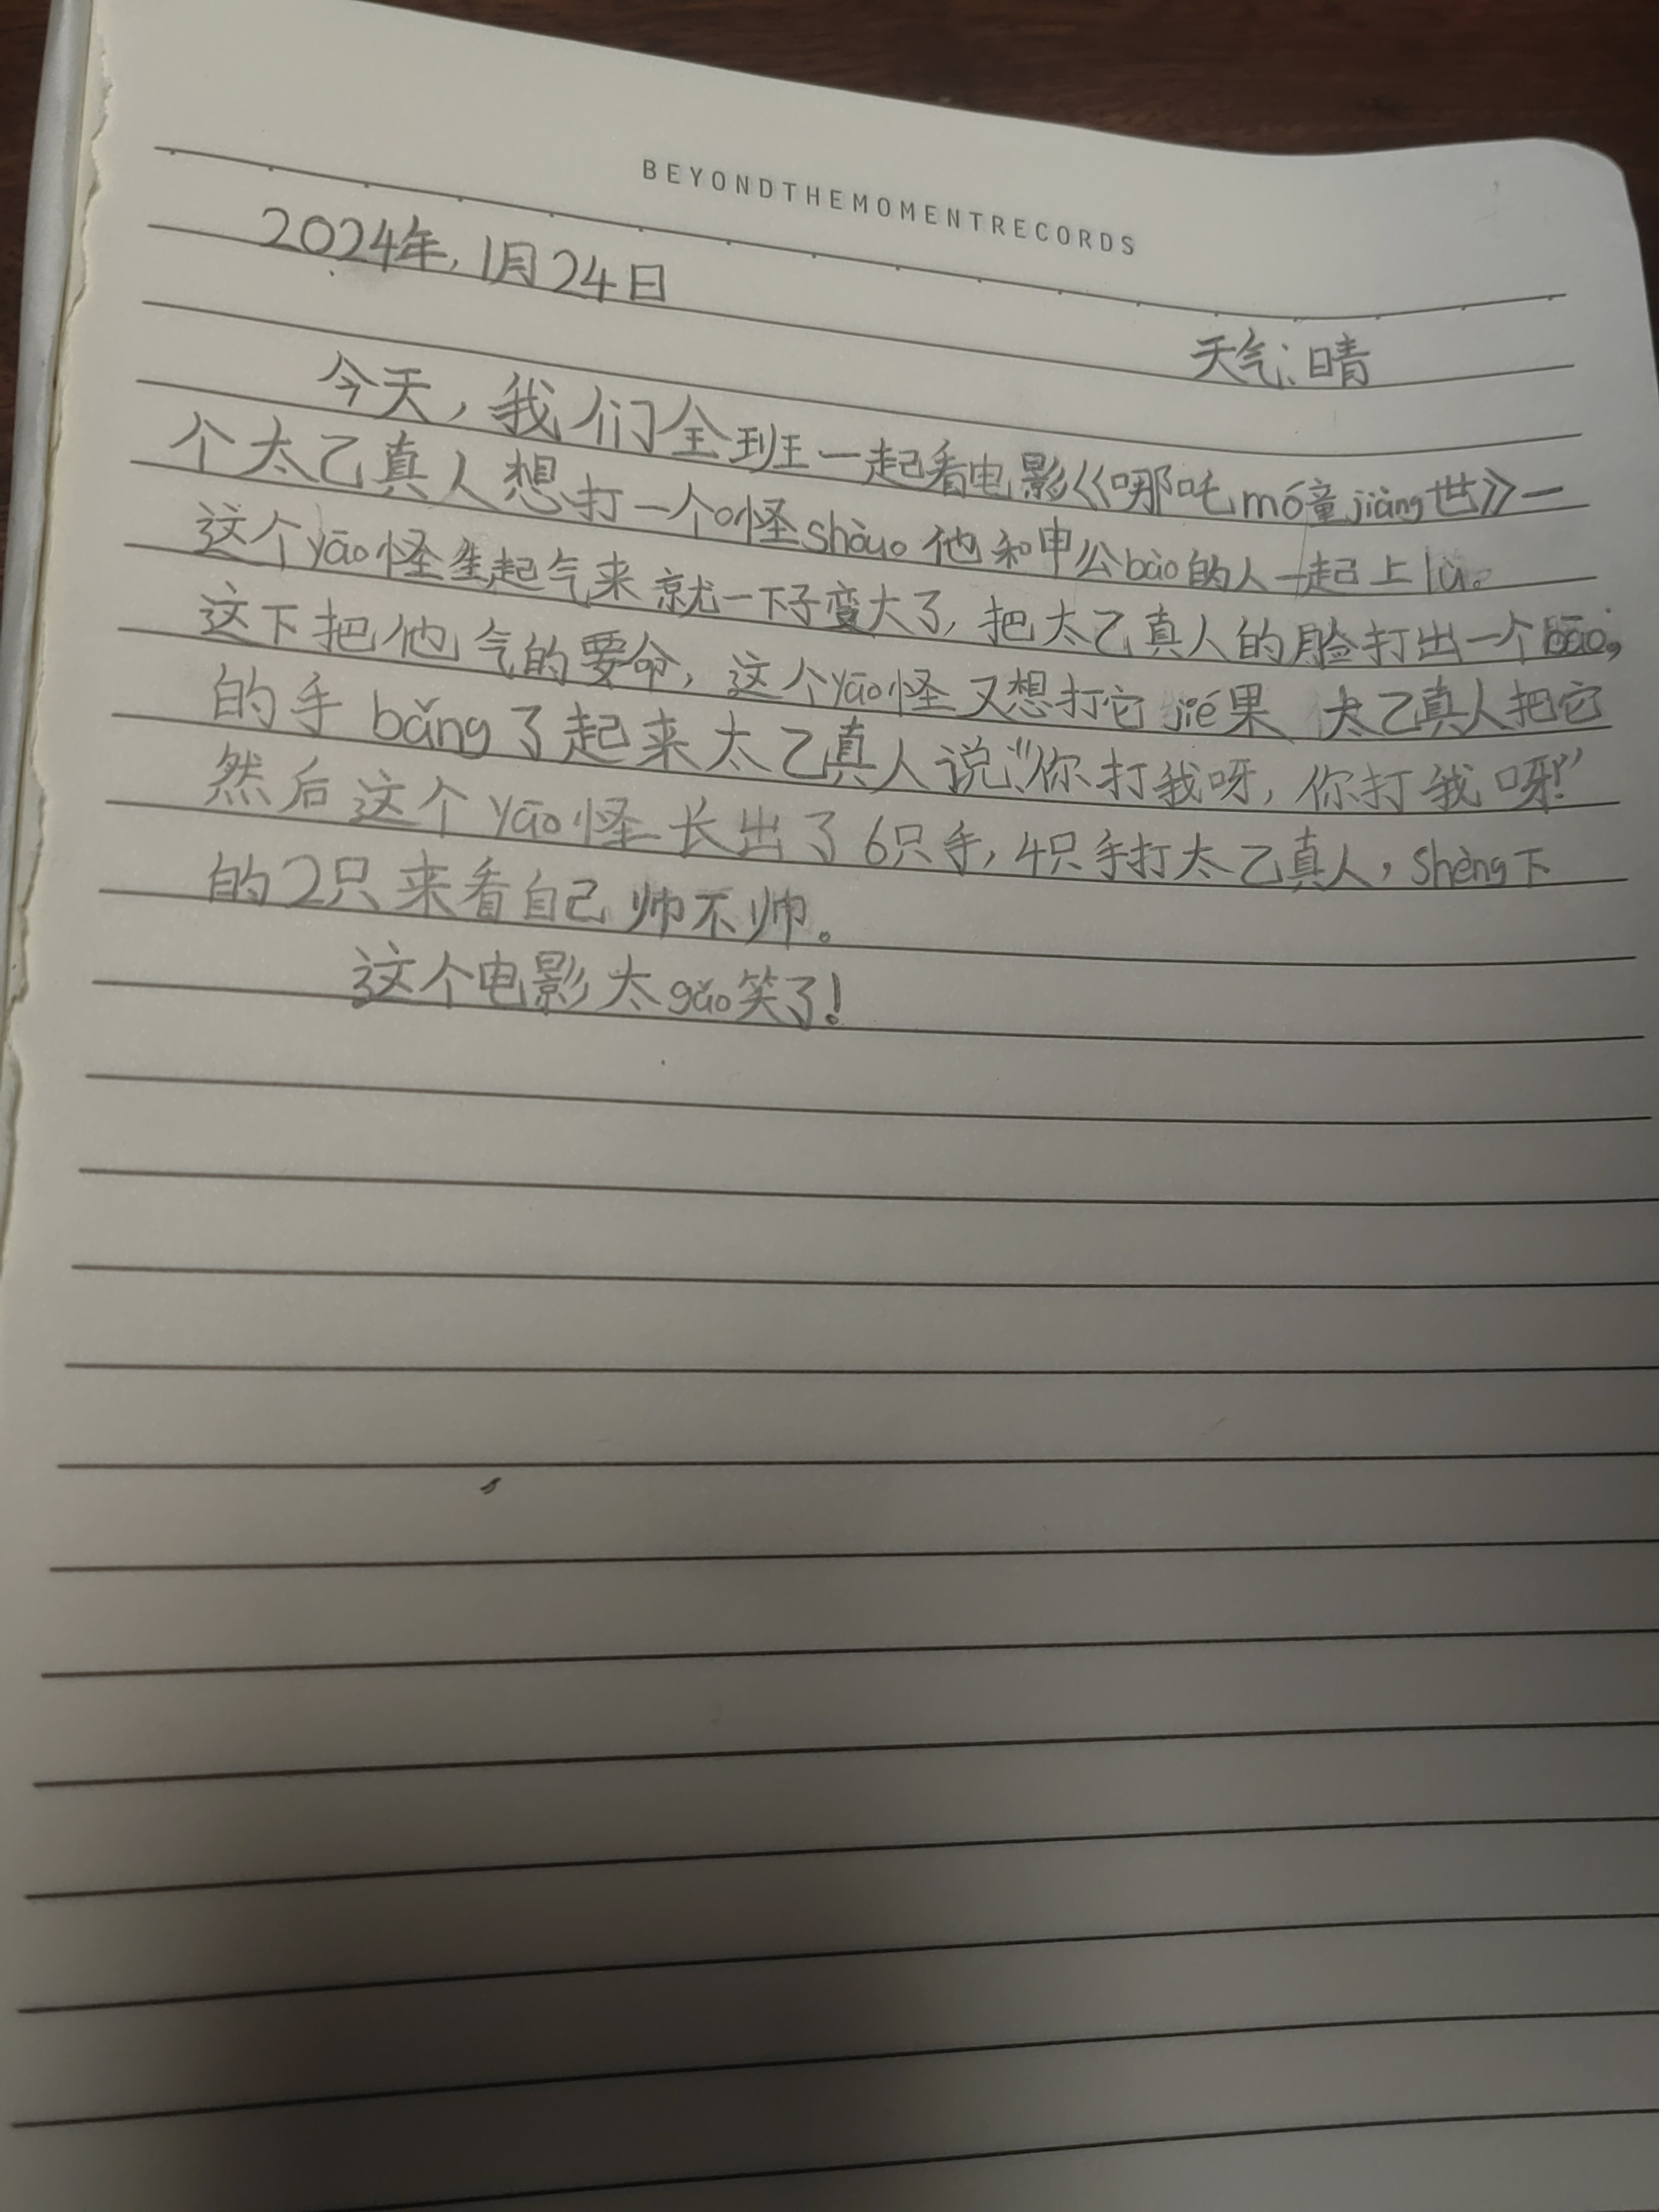 BEYONDTHEMOMENTRECORDS
2024年,1月24日
天气:晴
今天,我们全班一起看电影《哪吒mó童jiàng世》一
个太乙真人想打一个怪shòu。他和申公bào的人一起上lù。
这个yāo怪生起气来就一下子变大了,把太乙真人的脸打出一个bāo,
这下把他气的要命,这个yāo怪又想打它jié果 太乙真人把它
的手bǎng了起来太乙真人说:“你打我呀,你打我呀!”
然后这个yāo怪长出了6只手,4只手打太乙真人,shèng下
的2只来看自己帅不帅。
这个电影太gǎo笑了!